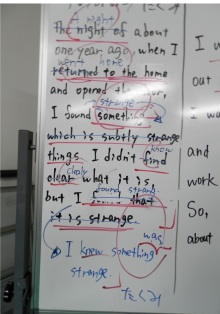 たくみ
night
the night of about
one year ago, when I
went home
returned to the home
and opened the door,
strange
I found something
which is subtly strange
things I didn't find
know
clear what it is,
found strange
but I that
it is strange.
was
I knew something
strange.
たくみ
I
out
I w
and
work
So,
about